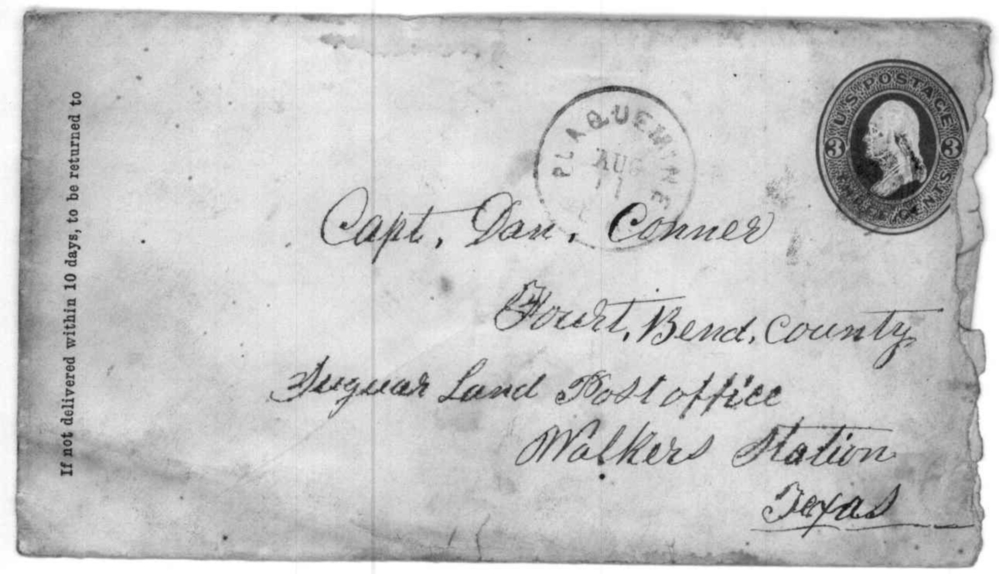 If not delivered within 10 days, to be returned to
PLAQUEMINE
AUG
11
U.S. POSTAGE
3 3
THREE CENTS
Capt. Dan. Conner
Fourt, Bend, County
Suguar Land Post office
Walkers Station
Texas